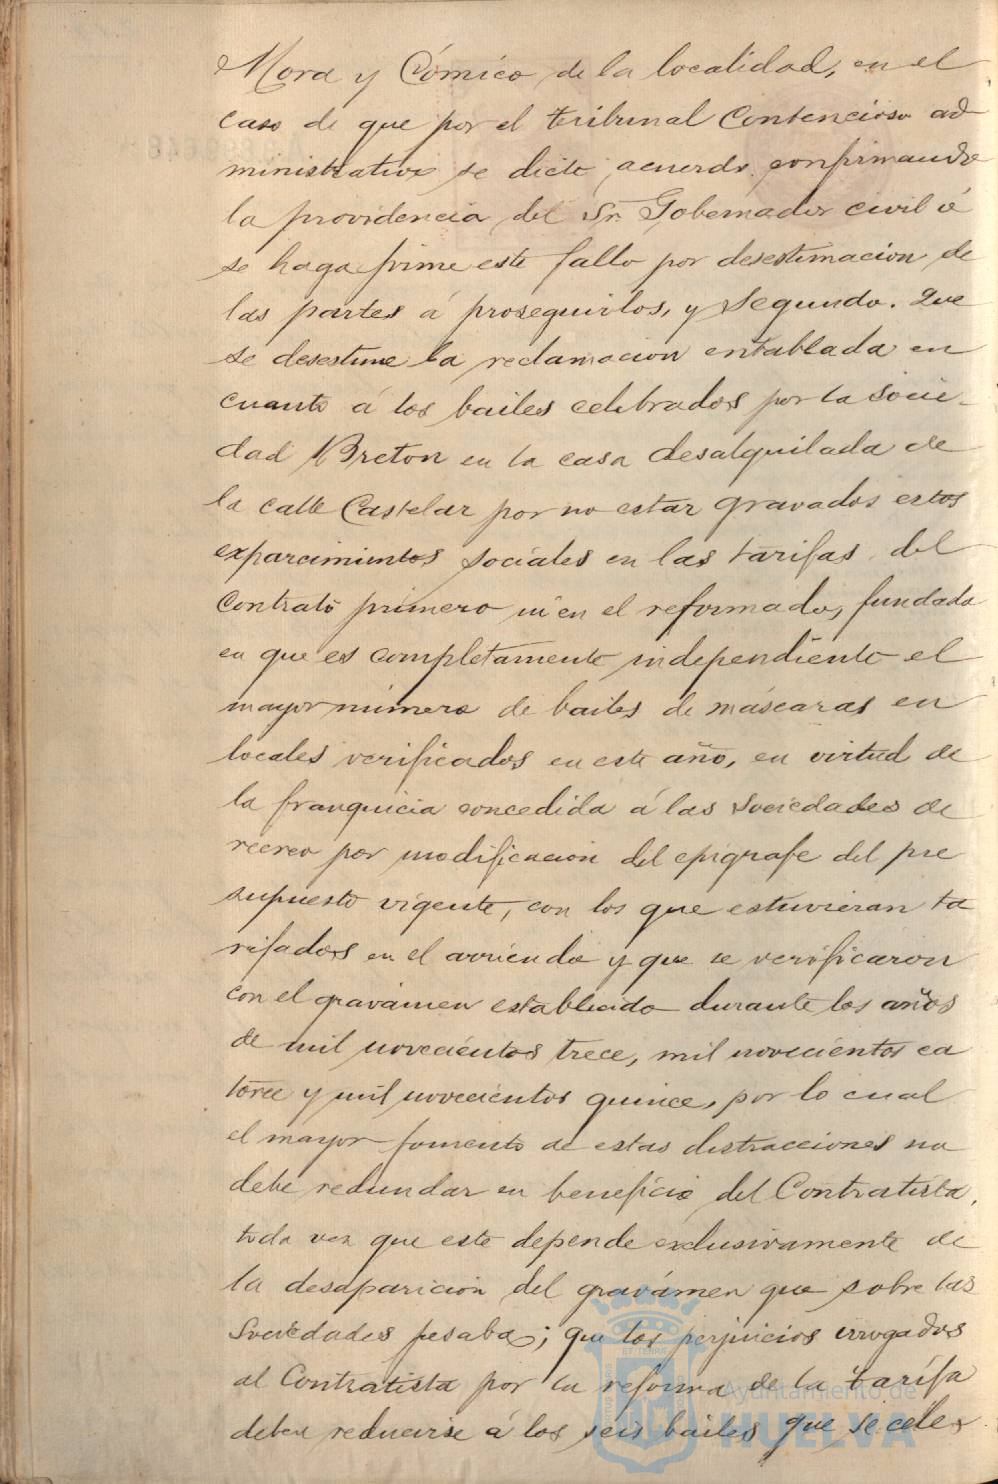 Mora y Cómico de la localidad, en el
caso de que por el tribunal Contencioso ad-
ministrativo se dicte acuerdo confirmando
la providencia del Sr. Gobernador civil ó
se haga firme este fallo por desestimacion de
las partes á proseguirlos, y Segundo. Que
se desestime la reclamacion entablada en
cuanto á los bailes celebrados por la socie-
dad Breton en la casa desalquilada de
la calle Castelar por no estar gravados estos
exparcimientos sociales en las tarifas del
Contrato primero ni en el reformado, fundado
en que es completamente independiente el
mayor número de bailes de máscaras en
locales verificados en este año, en virtud de
la franquicia concedida á las Sociedades de
recreo por modificacion del epigrafe del pre
supuesto vigente, con los que estuvieran ta
rifados en el arriendo y que se verificaron
con el gravámen establecido durante los años
de mil novecientos trece, mil novecientos ca
torce y mil novecientos quince, por lo cual
el mayor fomento de estas distracciones no
debe redundar en beneficio del Contratista,
toda vez que este depende exclusivamente de
la desaparicion del gravámen que sobre las
Sociedades pesaba; que los perjuicios irrogados
al Contratista por la reforma de la tarifa
deben reducirse á los seis bailes que se cele
Ayuntamiento de
HUELVA